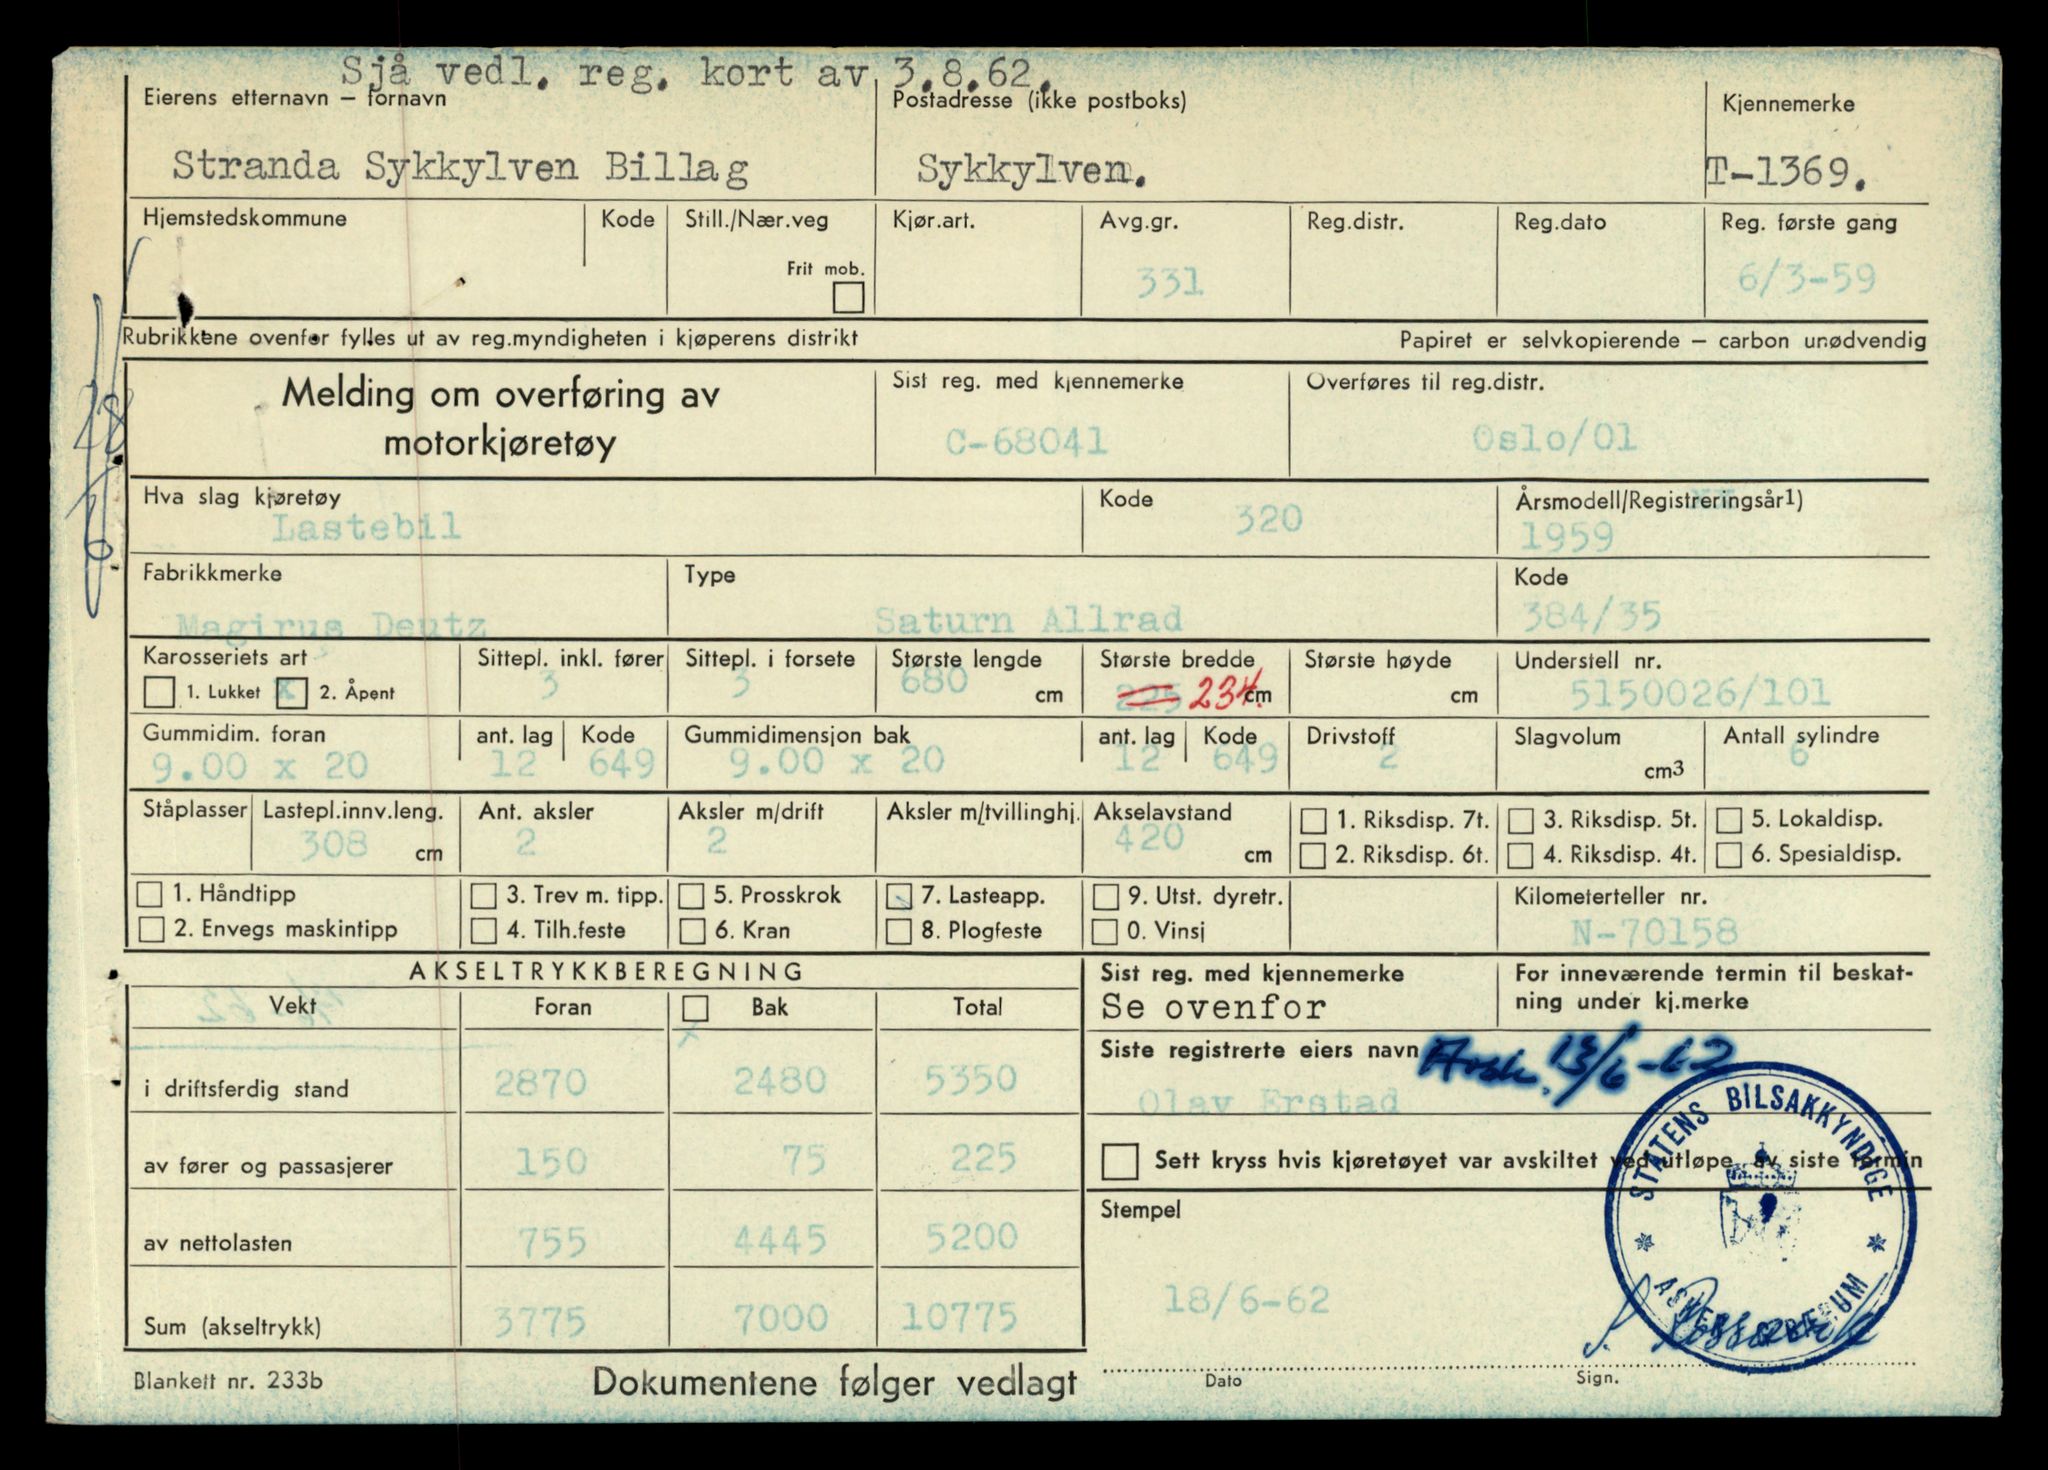 Sjå vedl. reg. kort av 3.8.62.
Eierens etternavn – fornavn Postadresse (ikke postboks) Kjennemerke
Stranda Sykkylven Billag Sykkylven. T-1369.
Hjemstedskommune Kode Still./Nær.veg Kjør.art. Avg.gr. Reg.distr. Reg.dato Reg. første gang
Frit mob. 331 6/3-59
Rubrikkene ovenfor fylles ut av reg.myndigheten i kjøperens distrikt Papiret er selvkopierende – carbon unødvendig
Melding om overføring av Sist reg. med kjennemerke Overføres til reg.distr.
motorkjøretøy C-68041 Oslo/01
Hva slag kjøretøy Kode Årsmodell/Registreringsår1)
Lastebil 320 1959
Fabrikkmerke Type Kode
Magirus Deutz Saturn Allrad 384/35
Karosseriets art Sittepl. inkl. fører Sittepl. i forsete Største lengde Største bredde Største høyde Understell nr.
1. Lukket x 2. Åpent 3 3 680 cm 225 234. cm cm 5150026/101
Gummidim. foran ant. lag Kode Gummidimensjon bak ant. lag Kode Drivstoff Slagvolum Antall sylindre
9.00 x 20 12 649 9.00 x 20 12 649 2 cm3 6
Ståplasser Lastepl.innv.leng. Ant. aksler Aksler m/drift Aksler m/tvillinghj. Akselavstand 1. Riksdisp. 7t. 3. Riksdisp. 5t. 5. Lokaldisp.
308 cm 2 2 420 cm 2. Riksdisp. 6t. 4. Riksdisp. 4t. 6. Spesialdisp.
1. Håndtipp 3. Trev m. tipp. 5. Prosskrok 7. Lasteapp. 9. Utst. dyretr. Kilometerteller nr.
2. Envegs maskintipp 4. Tilh.feste 6. Kran 8. Plogfeste 0. Vinsj N-70158
AKSELTRYKKBEREGNING Sist reg. med kjennemerke For inneværende termin til beskat-
Vekt Foran Bak Total Se ovenfor ning under kj.merke
x
Siste registrerte eiers navn 13/6-62
i driftsferdig stand 2870 2480 5350 Olav Erstad
av fører og passasjerer 150 75 225 Sett kryss hvis kjøretøyet var avskiltet ved utløpe av siste termin
STATENS BILSAKKYNDIGE
Stempel
av nettolasten 755 4445 5200
18/6-62
Sum (akseltrykk) 3775 7000 10775
Blankett nr. 233b Dokumentene følger vedlagt Dato Sign.